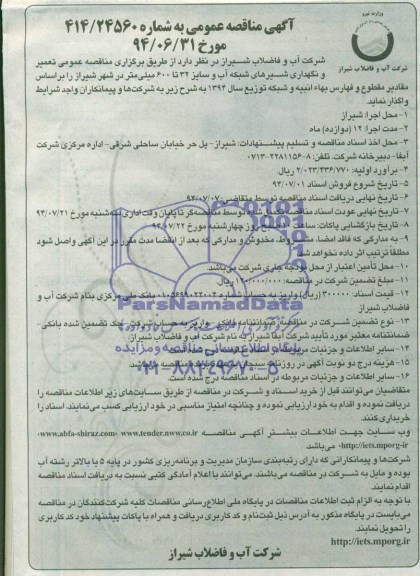 وزارت نیرو
شرکت آب و فاضلاب شیراز
آگهی مناقصه عمومی به شماره ۴۱۴/۲۴۵۶۰
مورخ ۹۴/۰۶/۳۱
شرکت آب و فاضلاب شیراز در نظر دارد از طریق برگزاری مناقصه عمومی تعمیر
و نگهداری شیرهای شبکه آب و سایز ۳۲ تا ۶۰۰ میلی‌متر در شهر شیراز را براساس
مقادیر مقطوع و فهارس بهاء ابنیه و شبکه توزیع سال ۱۳۹۴ به شرح زیر به شرکت‌ها و پیمانکاران واجد شرایط
واگذار نماید.
۱- محل اجرا: شیراز
۲- مدت اجرا: ۱۲ (دوازده) ماه
۳- محل اخذ اسناد مناقصه و تسلیم پیشنهادات: شیراز- پل حر خیابان ساحلی شرقی- اداره مرکزی شرکت
آبفا- دبیرخانه شرکت. تلفن: ۸-۲۲۸۱۱۵۶-۰۷۱۳
۴- برآورد اولیه: ۲/۰۲۳/۳۳۶/۷۷۰ ریال
۵- تاریخ شروع فروش اسناد ۹۴/۰۷/۰۱
۶- تاریخ نهایی دریافت اسناد مناقصه توسط متقاضی ۹۴/۰۷/۰۷
۷- تاریخ نهایی عودت اسناد مناقصه توسط مناقصه‌گر تا پایان وقت اداری سه‌شنبه مورخ ۹۴/۰۷/۲۱
۸- تاریخ بازگشایی پاکات: ساعت صبح روز چهارشنبه مورخ ۹۴/۰۷/۲۲
۹- به مدارکی که فاقد امضا، مشروط، مخدوش و مدارکی که بعد از انقضا مدت مقرر در این آگهی واصل شود
مطلقاً ترتیب اثر داده نخواهد شد
۱۰- محل تأمین اعتبار از محل بودجه جاری شرکت می‌باشد
۱۱- مبلغ تضمین شرکت در مناقصه: ریال
۱۲- قیمت اسناد: ۳۰۰۰۰۰ (ریال) واریز به حساب شماره بانک ملی مرکزی بنام شرکت آب و
فاضلاب شیراز
۱۳- نوع تضمین شرکت در مناقصه: ضمانتنامه بانکی، واریز به حساب شرکت، چک تضمین شده بانکی
ضمانتنامه معتبر مورد تأیید شرکت آبفا شیراز به نام شرکت آب و فاضلاب شیراز.
۱۴- سایر اطلاعات و جزئیات مربوطه در
۱۵- هزینه درج دو نوبت آگهی در روزنامه
۱۶- سایر اطلاعات و جزئیات مربوطه در اسناد مناقصه درج شده است.
متقاضیان می‌توانند قبل از خرید اسناد و شرکت در مناقصه از طریق سایت‌های زیر اطلاعات مناقصه را
دریافت نموده و اقدام به خود ارزیابی نموده و چنانچه امتیاز مناسبی در خود ارزیابی کسب می‌نمایند، اسناد را
خریداری کنند.
وب سایت جهت اطلاعات بیشتر آگهی مناقصه www.tender.nww.co.ir www.abfa-shiraz.com،
http://iets.mporg.ir می‌باشد.
شرکت‌ها و پیمانکارانی که دارای رتبه‌بندی سازمان مدیریت و برنامه‌ریزی کشور در پایه ۵ یا بالاتر رشته آب
بوده و مایل به شرکت در مناقصه می‌باشند، می‌توانند با اعلام آمادگی کتبی نسبت به دریافت اسناد مناقصه
اقدام نمایند.
با توجه به الزام ثبت اطلاعات مناقصات در پایگاه ملی اطلاع‌رسانی مناقصات کلیه شرکت‌کنندگان در مناقصه
می‌بایست در پایگاه مذکور به آدرس ذیل ثبت‌نام و کد کاربری دریافت و همراه با پاکات پیشنهاد خود کد کاربری
را تحویل نمایند.
http://iets.mporg.ir
شرکت آب و فاضلاب شیراز
ParsNamadData
پایگاه اطلاع رسانی مناقصه و مزایده
۰۲۱-۸۸۳۴۹۶۷۰-۵